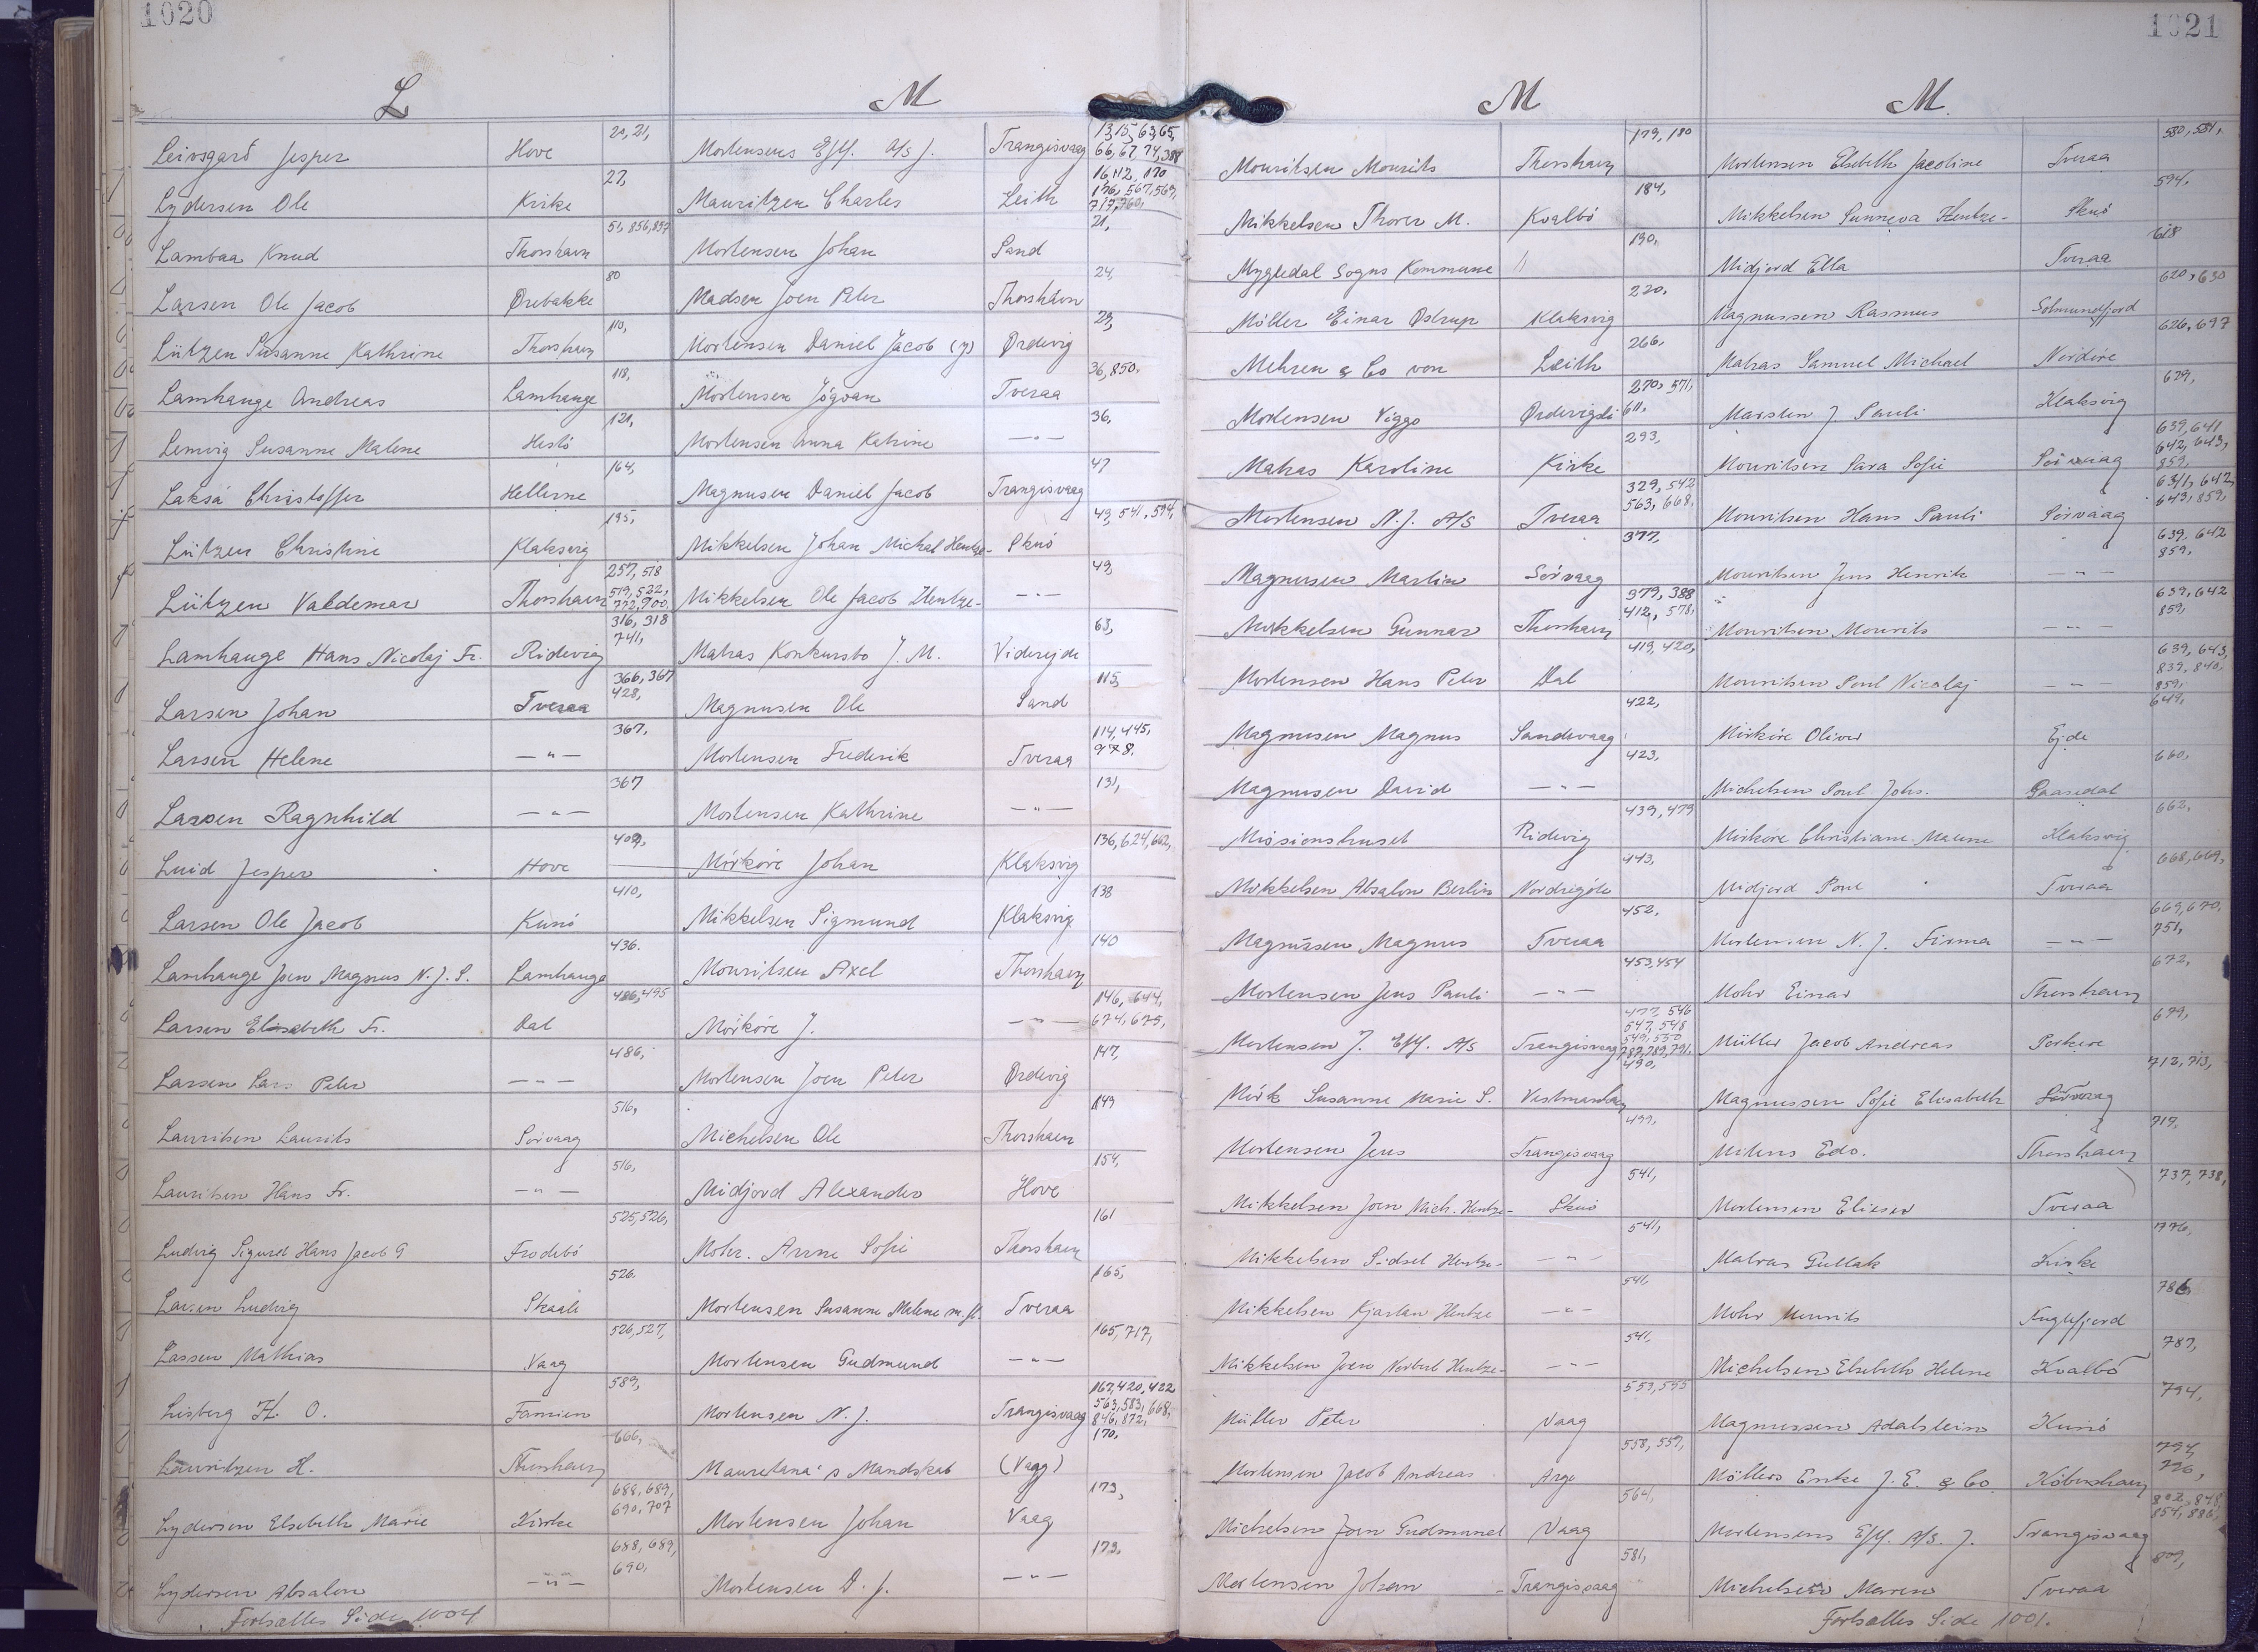 1020
L
Leivsgard Jesper Hove 20, 21,
Lydersen Ole Kirke 27,
Lambaa Knud Thorshavn 51, 856, 857
Larsen Ole Jacob Ørebakke 80
Lützen Susanne Kathrine Thorshavn 110,
Lamhauge Andreas Lamhauge 118,
Lemvig Susanne Malene Hestö 121,
Laksá Christoffer Hellerne 164,
Lützen Christine Klaksvig 195,
Lützen Valdemar Thorshavn 257, 518 519, 522, 772, 900,
Lamhauge Hans Nicolaj Fr. Ridevig 316, 318 741,
Larsen Johan Tveraa 366, 367 428,
Larsen Helene —"— 367,
Larsen Ragnhild —"— 367
Luid Jesper Hove 409,
Larsen Ole Jacob Kunö 410,
Lamhauge Joen Magnus N. J. S. Lamhauge 436.
Larsen Elisabeth Fr. Dal 486, 495
Larsen Lars Peter —"— 486,
Lauritsen Laurits Sörvaag 516,
Lauritsen Hans Fr. —"— 516,
Ludvig Sigurd Hans Jacob G Frodebö 525, 526,
Larsen Ludvig Skaale 526.
Lassen Mathias Vaag 526, 527,
Lisberg H. O. Famien 589,
Lauritzen H. Thorshavn 666,
Lydersen Elsebeth Marie Kirke 688, 689, 690, 707
Lydersen Absalon —"— 688, 689, 690,
Fortsættes Side 1004
M
Mortensens Eftf. A/S J. Trangisvaag 13, 15, 63, 65, 66, 67, 74, 388
Mauritzen Charles Leith 16, 112, 170 196, 567, 569, 717, 760,
Mortensen Johan Sand 21,
Madsen Joen Peter Thorshavn 24,
Mortensen Daniel Jacob (y) Ørdevig 29,
Mortensen Jógvan Tveraa 36, 850.
Mortensen Anna Katrine —"— 36,
Magnusen Daniel Jacob Trangisvaag 47
Mikkelsen Johan Michal Hentze- Skuö 49, 541, 594,
Mikkelsen Ole Jacob Hentze- —"— 49,
Matras Konkursbo J. M. Viderejde 63,
Magnusen Ole Sand 115,
Mortensen Frederik Tveraa 114, 445, 978.
Mortensen Kathrine —"— 131,
Mörköre Johan Klaksvig 136, 624, 662,
Mikkelsen Sigmund Klaksvig 138
Mouritsen Axel Thorshavn 140
Mörköre J. —"— 146, 644, 674, 675,
Mortensen Joen Peter Ørdevig 147,
Michelsen Ole Thorshavn 149
Midjord Alexander Hove 154,
Mohr. Anne Sofie Thorshavn 161
Mortensen Susanne Malene m. fl. Tveraa 165,
Mortensen Gudmund —"— 165, 717,
Mortensen N. J. Trangisvaag 167, 420, 422 563, 583, 668, 846, 872,
Mauretana's Mandskab (Vaag) 170,
Mortensen Johan Vaag 173,
Mortensen D. J. —"— 173.
1021
M
Mouritsen Mourits Thorshavn 179, 180
Mikkelsen Thorer M. Kvalbö 184,
Mygledal Sogns Kommune " 190,
Möller Einar Ostrup Klaksvig 220,
Mehren & Co von Leith 266.
Mortensen Viggo Ørdevigsli 270, 571, 611,
Matras Karoline Kirke 293,
Mortensen N. J. A/S Tveraa 329, 542 563, 668,
Magnusen Martin Sörvaag 377,
Mikkelsen Gunnar Thorshavn 379, 388 412, 578,
Mortensen Hans Peter Dal 419, 420,
Magnusen Magnus Sandevaag 422,
Magnusen David —"— 423,
Missionshuset Ridevig 439, 479
Mikkelsen Absalon Berlin Nordregöte 443,
Magnusen Magnus Tveraa 452,
Mortensen Jens Pauli —"— 453, 454
Mortensen J. Eftf. A/S Trangisvaag 477, 546 547, 548 549, 550 787, 789, 791,
Mörk Susanne Marie S. Vestmanhavn 490,
Mortensen Jens Trangisvaag 499,
Mikkelsen Joen Mich. Hentze- Skuö 541,
Mikkelsen Sidsel Hentze- —"— 541,
Mikkelsen Kjartan Hentze —"— 541,
Mikkelsen Joen Norbert Hentze- —"— 541,
Müller Peter Vaag 553, 555
Mortensen Jacob Andreas Arge 558, 559,
Michelsen Joen Gudmund Vaag 564,
Mortensen Johan Trangisvaag 581,
M.
Mortensen Elsebeth Jacoline Tveraa 580, 581,
Mikkelsen Sunneva Hentze- Skuö 594,
Midjord Ella Tveraa 618
Magnussen Rasmus Solmundfjord 620, 630
Matras Samuel Michael Nordöre 626, 697
Marsten J. Pauli Klaksvig 629,
Mouritsen Sara Sofie Sörvaag 639, 641 642, 643, 859,
Mouritsen Hans Pauli Sörvaag 639, 642, 643, 859,
Mouritsen Jens Henrik —"— 639, 642 859,
Mouritsen Mourits —"— 639, 642 859,
Mouritsen Poul Nicolaj —"— 639, 643, 839, 840, 859,
Mörköre Oliver Ejde 649,
Michelsen Poul Johs. Gaasedal 660,
Mörköre Christiane Malene Klaksvig 662,
Midjord Poul Tveraa 668, 669,
Mortensen N. J. Firma —"— 669, 670, 751,
Mohr Einar Thorshavn 672,
Müller Jacob Andreas Porkere 679,
Magnussen Sofie Elisabeth Sörvaag 712, 713,
Mitens Edv. Thorshavn 717,
Mortensen Elieser Tveraa 737, 738,
Matras Gullak Kirke 776,
Mohr Mourits Fuglefjord 786
Michelsen Elsebeth Helene Kvalbö 787,
Magnussen Adalstein Kunö 794,
Möllers Enke J. E. & Co. Köbenhavn 794, 796,
Mortensens Eftf. A/S. J. Trangisvaag 802, 848, 854, 886,
Michelsen Maren Tveraa 809,
Fortsættes Side 1001.